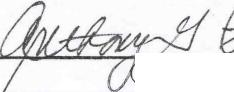 Anthony G